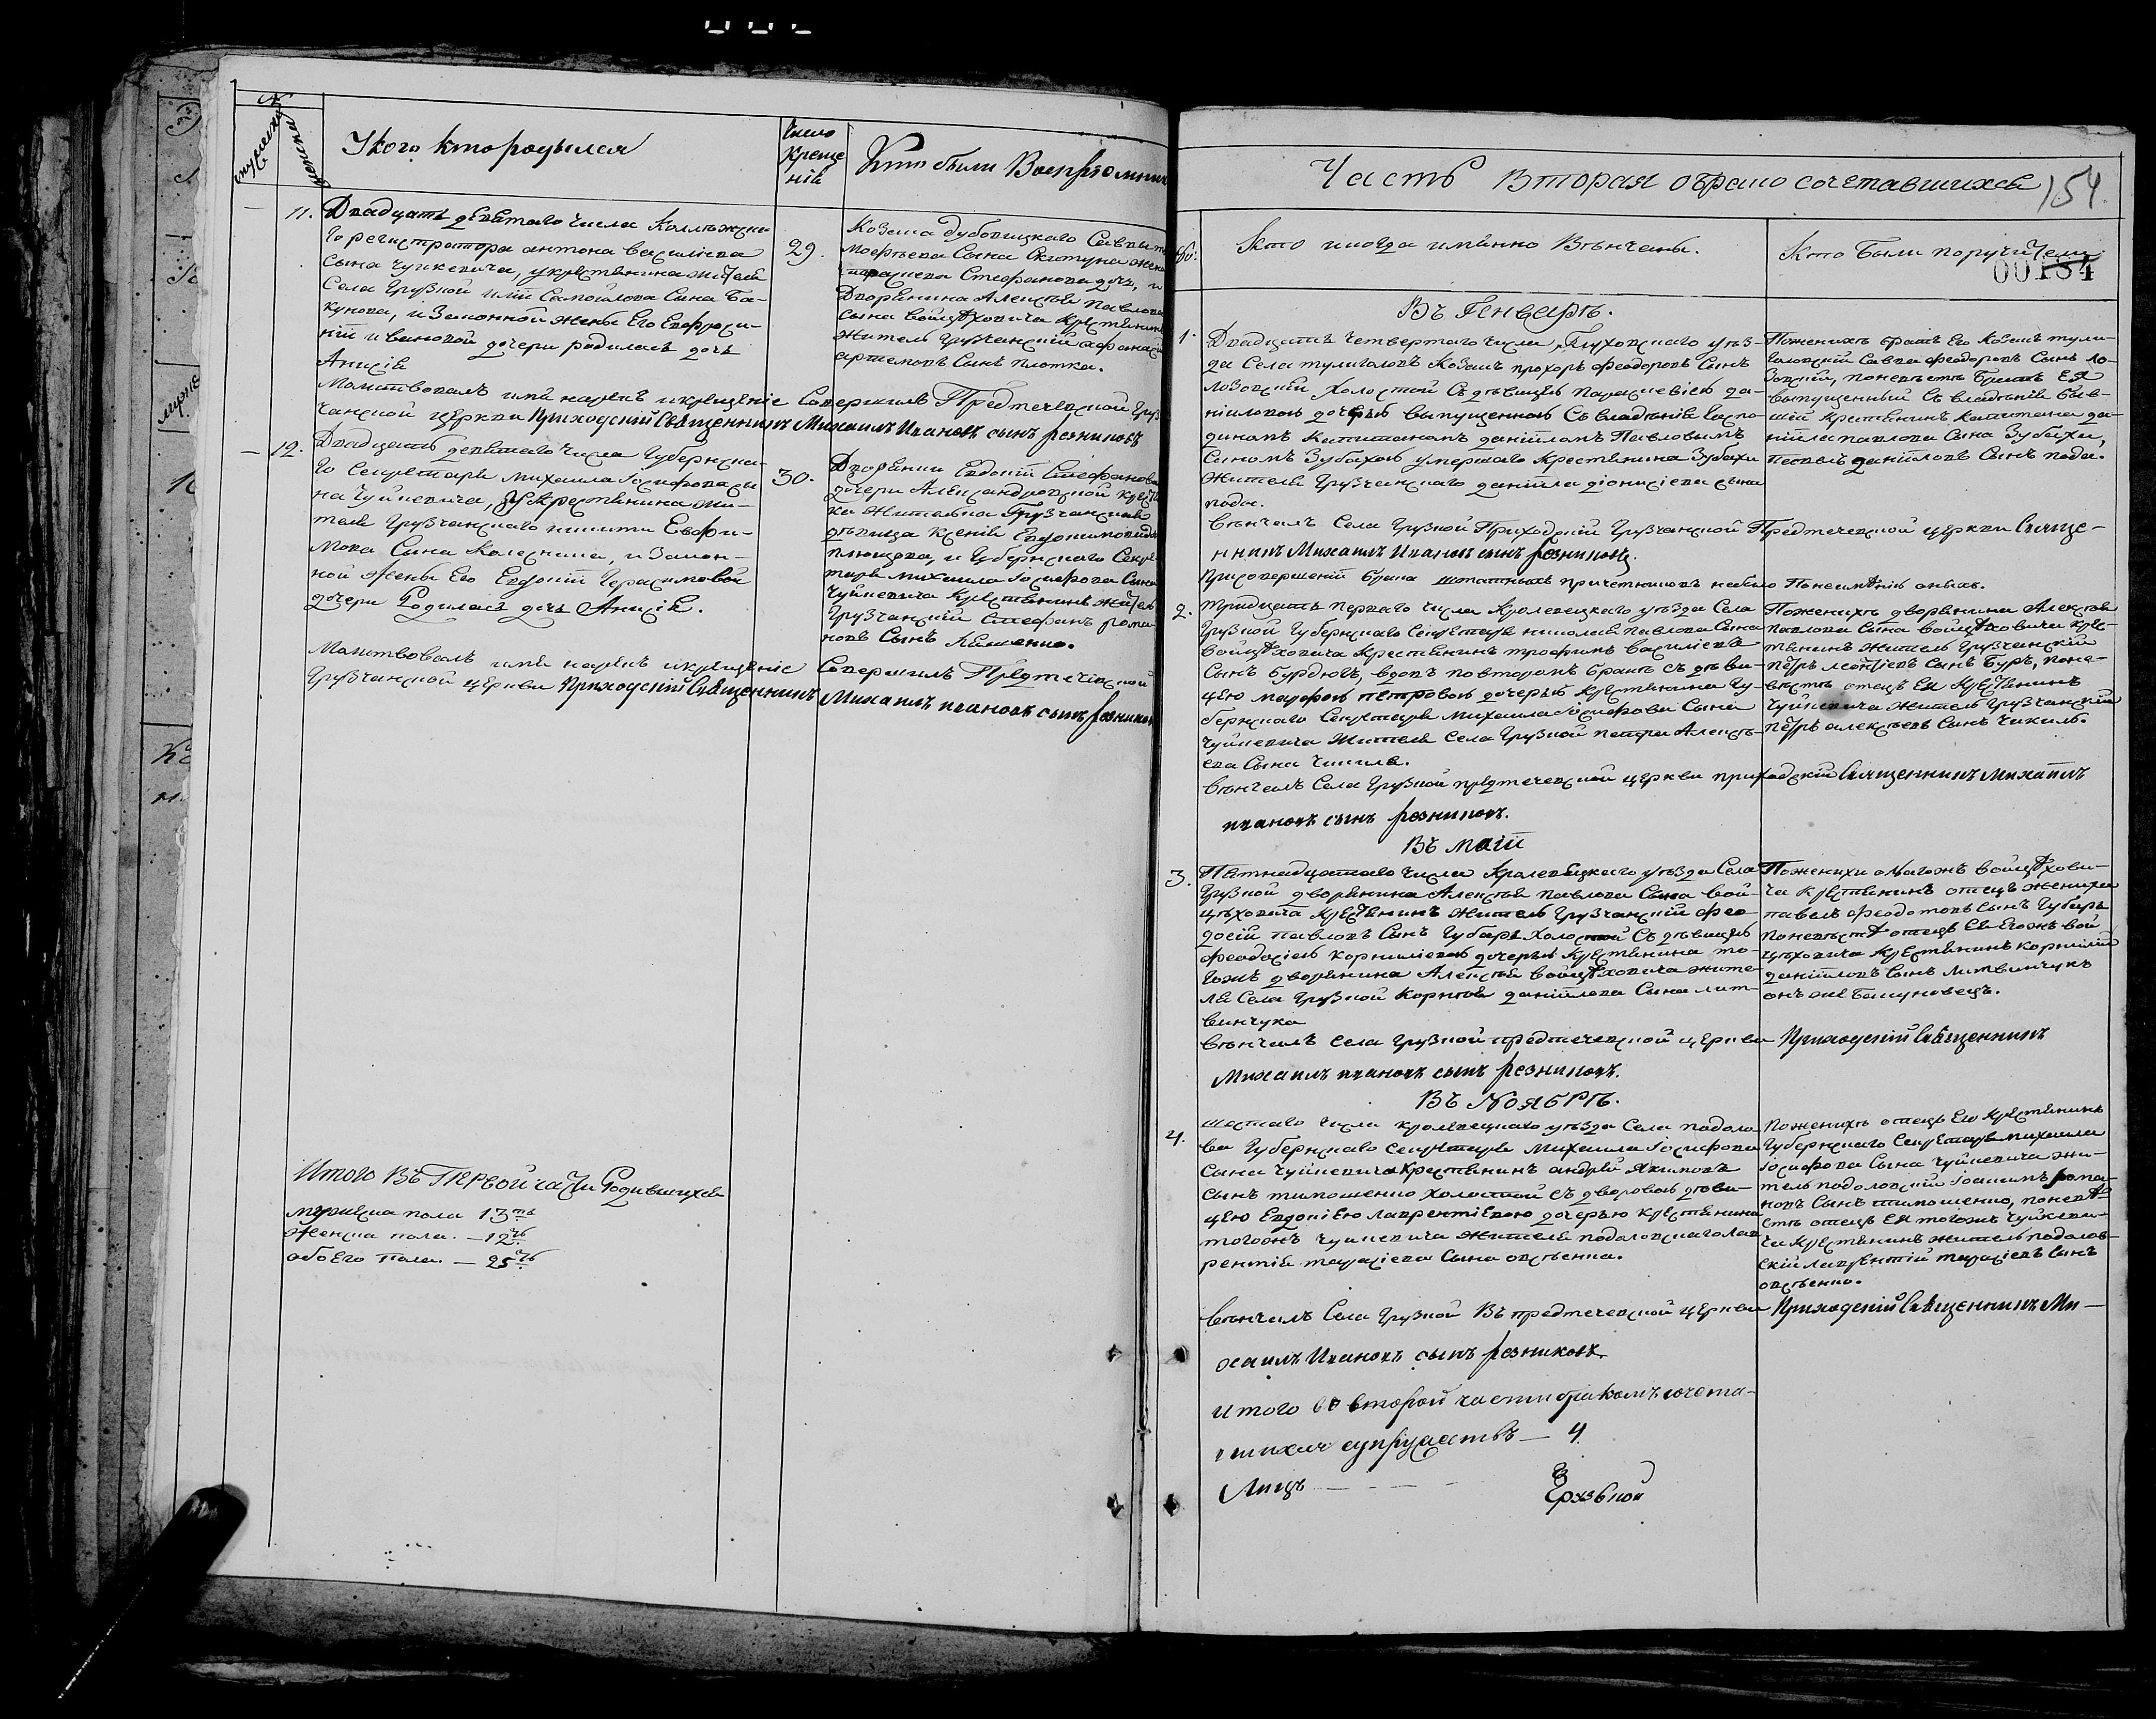 мужеска
женска
У кого кто родылся
Число
креще
нiй
Кто были Воспрiемник
11.
Двадцать девятого числа Коллѣжска-
го регистратора антона василіева
сына чуйкевича, у крестянина жителя
села грузкой илiи самойлова сына Ба-
кунова, и законной жены Его Ефроси-
нiи ивановой дочери родилась дочь
Анисiя
29.
Козака дубовицкаго Савы
сына жена
Стефанова дочь, и
Дворянина Алексѣя павлова
сына войцѣховича крестянинъ
житель грузчанскiй
артемовъ сынъ плотка.
Молитвовалъ имя нарекъ икрещенiе Совершилъ Предтечевской груз
чанской церкви Приходскiй Священникъ Михаилъ Ивановъ сынъ резниковъ
12.
Двадцать девятаго числа Губернска-
го Секретаря михаила Iосифова сы
на Чуйкевича, У крестянина жи-
теля грузчанскаго никиты Евфи-
мова Сына Колесника, и Закон-
ной жены Его Евдокiи Герасимовой
дочери Родилась дочь Анисiя.
30.
Дворянки Евдокiи Стефановой
дочери Александровской крест
ка жителка Грузчанская
дѣвица Ксенiя
и Губернскаго Секре
таря михаила Iосифова Сына
Чуйкевича крестянинъ житель
грузчанскiй Стефанъ рома-
новъ Сынъ Ляшенко.
Молитвовалъ имя нарекъ икрещенiе Совершилъ Предтечевской
Грузчанской церкви Приходскiй Священникъ Михаилъ ивановъ сынъ резников
Итого Въ Первой части Родившихся
мужеска пола 13ть
женска пола. — 12ть
обоЕго пола. — 25ть
Часть Вторая о бракосочетавшихся
154.
Кто и когда имянно Вѣнчаны.
Кто Были поручители
00134
Въ Генварѣ.
1.
Двадцать четвертаго числа, Глуховскаго уѣз-
да Села тулиголовъ Козакъ прохоръ феодоровъ Сынъ
Лозовскiй Холостой Съ дѣвицею параскевiею да-
нiиловою дочерью выпущенною Съ владѣнiя Госпо-
диномъ Капитаномъ данiиломъ Павловымъ
Сыномъ Зубахою умершаго крестянина Зубахи
жителя Грузчанскаго данiила дiонисiева сына
пода.
По женихѣ братъ его Козакъ тули-
головскiй Савва феодоровъ Сынъ Ло-
зовскiй, по невѣстѣ Братъ Ея
выпущенный Съ владѣнiя быв-
шiй крестянинъ капитана да-
нiила павлова Сына Зубахи,
данiиловъ Сынъ пода.
Вѣнчалъ Села Грузкой Приходскiй Грузчанской Предтечевской церкви Свяще-
нникъ Михаилъ Ивановъ сынъ резниковъ.
При совершенiй брака штатныхъ причетниковъ небыло По неимѣнiю оныхъ.
2.
тридцать перваго числа Кролевецкаго уѣзда Села
Грузкой Губернскаго Секретаря николая павлова Сына
Войцѣховича крестянинъ трофимъ василіевъ
Сынъ Бурдюгъ, вдовъ по второмъ бракѣ съ дѣви-
цею марфою петровою дочерью крестянина Гу-
бернскаго Секретаря михаила Iосифова Сына
Чуйкевича жителя Села Грузкой петра Алексѣ-
ева Сына Чикиля.
По женихѣ дворянина Алексѣя
павлова Сына войцѣховича кре-
стянинъ житель Грузчанскiй
петръ леонтiевъ Сынъ Буръ, по не-
вѣстѣ отецъ Ея крестянинъ
Чуйкевича житель Грузчанскiй
петръ алексѣевъ Сынъ чикиль.
Вѣнчалъ Села Грузкой предтечевской церкви приходскiй Священникъ Михаилъ
ивановъ сынъ резниковъ.
Въ Маiи
3.
Пятнадцатаго числа Кролевецкаго уѣзда Села
Грузкой дворянина Алексѣя павлова Сына вой-
цѣховича крестянинъ житель Грузчанскiй фео-
досiй павловъ Сынъ Губарь Холостой Съ дѣвицею
феодосiею корнилiевою дочерью крестянина то-
гожъ дворянина Алексѣя войцѣховича жите-
ля Села Грузкой Корнилiя данiилова Сына лит-
винчука
По женихѣ тогожъ войцѣхови-
ча крестянинъ отецъ жениха
павелъ феодотовъ Сынъ Губарь
По невѣстѣ отецъ Ея тогожъ вой
цѣховича крестянинъ корнилiй
данiиловъ Сынъ литвинчукъ
онъ же Бакуновецъ.
Вѣнчалъ Села Грузкой предтечевской церкви Приходскiй Священникъ
Михаилъ ивановъ сынъ резниковъ.
Въ Ноябрѣ.
4.
шестаго числа кролевецкаго уѣзда Села подоло-
ва Губернскаго Секретаря Михаила Iосифова
Сына чуйкевича крестянинъ андрей якимовъ
Сынъ тимошенко холостой съ дворовою дѣви-
цею Евдокiею лаврентiевою дочерью крестянина
тогожъ чуйкевича жителя подоловскаго Лав
рентiя тарасiева Сына овсѣенка.
По женихѣ отецъ Его крестянинъ
Губернскаго Секретаря михаила
Iосифова Сына чуйкевича жи-
тель подоловскiй Iоакимъ рома-
новъ Сынъ тимошенко, по невѣ
стѣ отецъ Ея тогожъ чуйкеви-
ча крестянинъ житель подолов-
скiй лаврентiй тарасiевъ Сынъ
овсѣенко.
Вѣнчалъ Села Грузкой Въ предтечевской церкви Приходскiй Священникъ Ми-
хаилъ Ивановъ сынъ резниковъ.
Итого во второй части бракомъ сочета-
вшихся супружествъ — 4.
Лицъ